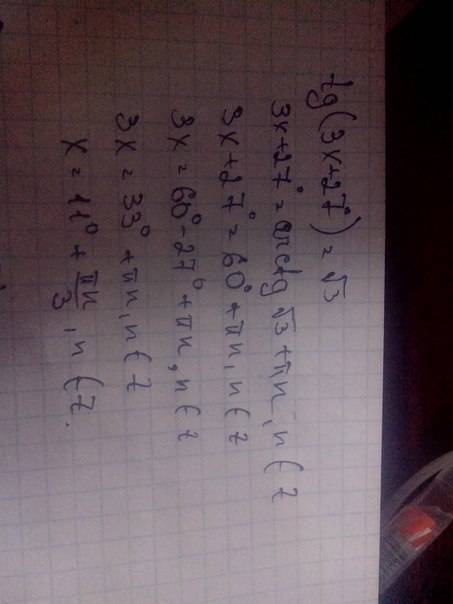 tg(3x+27°) = √3
3x+27° = arctg √3 + πn, n ∈ Z
3x+27° = 60° + πn, n ∈ Z
3x = 60° - 27° + πn, n ∈ Z
3x = 33° + πn, n ∈ Z
x = 11° + πn/3, n ∈ Z.